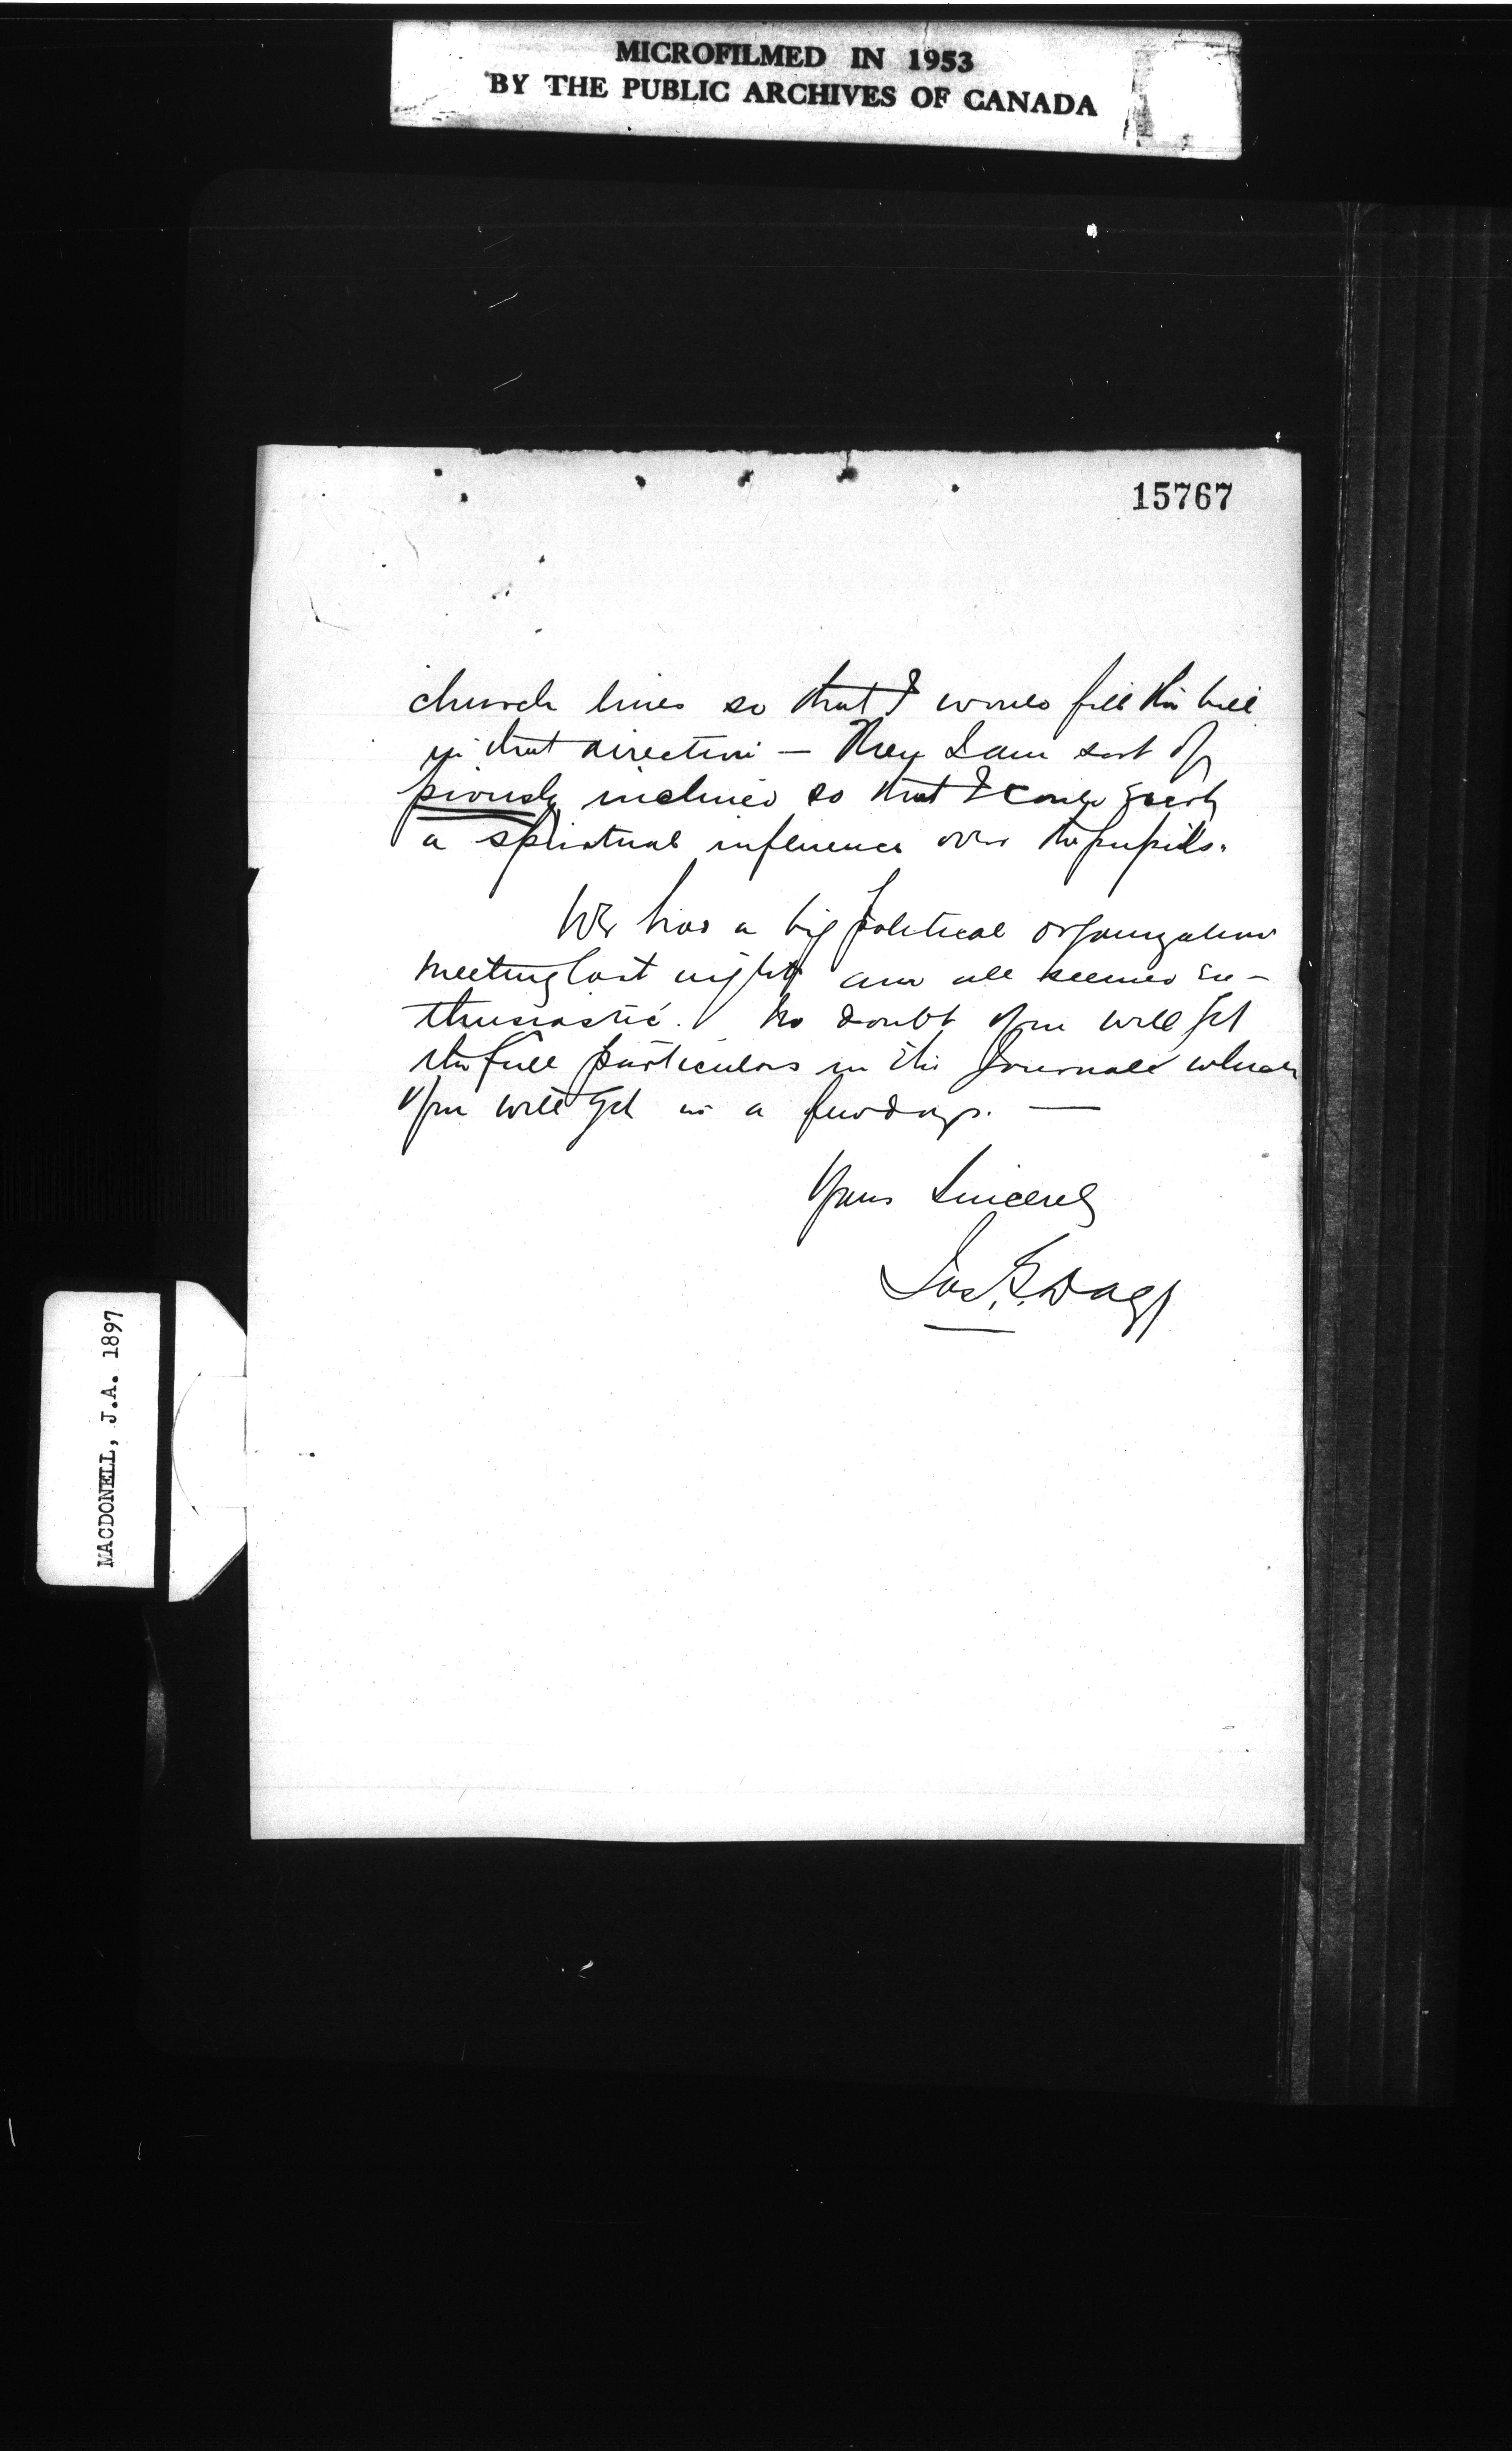 MICROFILMED IN 1953
BY THE PUBLIC ARCHIVES OF CANADA
15767
church lines so that I would fill the bill
in that direction — Then I am sort of
piously inclined so that I could exert
a spiritual influence over the pupils.
We had a big political organization
meeting last night and all seemed en-
thusiastic. No doubt you will get
the full particulars in the Journals which
you will get in a few days. —
Yours Sincerely
Jas.
MACDONELL, J.A. 1897